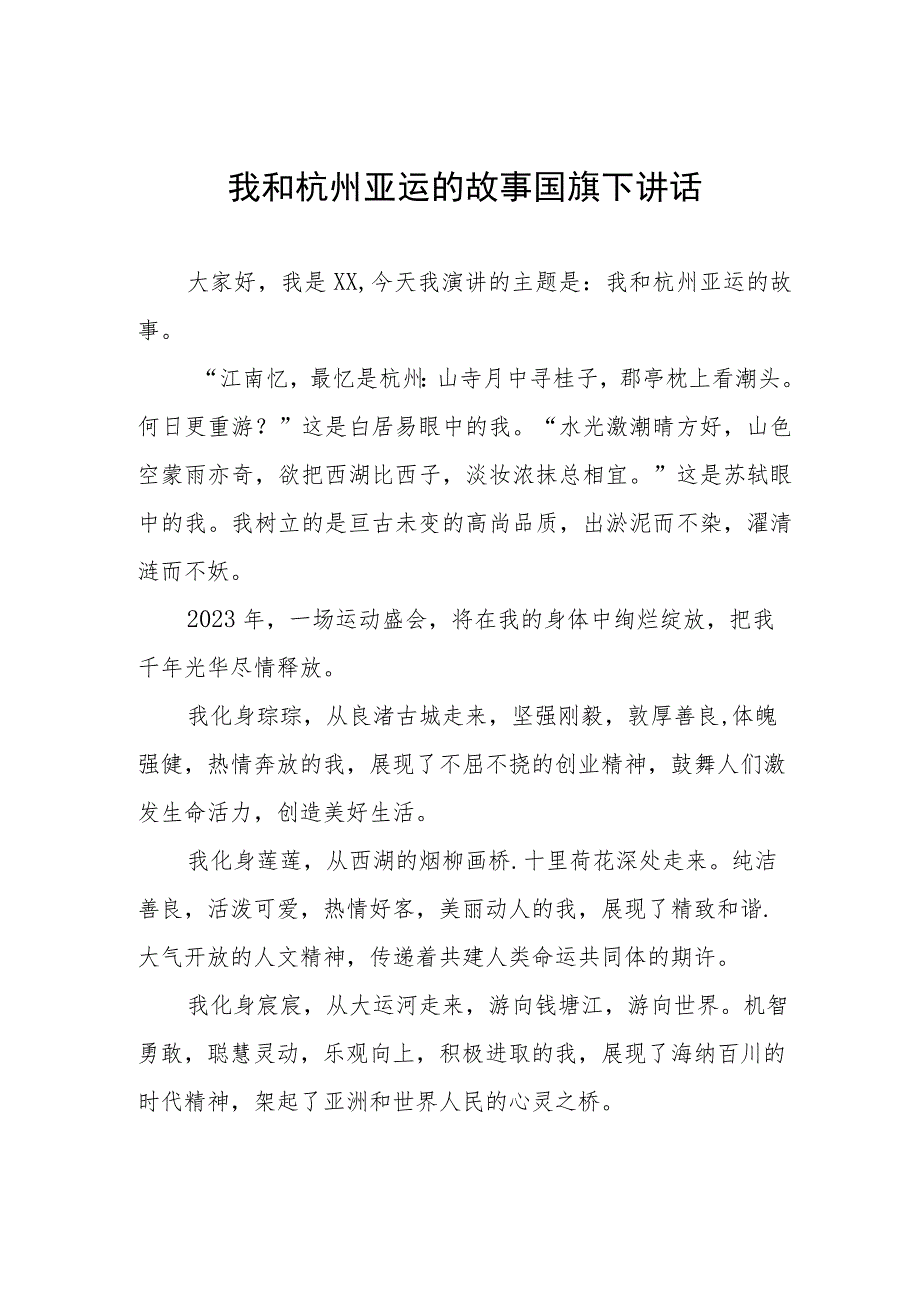 我和杭州亚运的故事国旗下讲话
大家好，我是 XX,今天我演讲的主题是：我和杭州亚运的故
事。
“江南忆，最忆是杭州：山寺月中寻桂子，郡亭枕上看潮头。
何日更重游？”这是白居易眼中的我。“水光激潮晴方好，山色
空蒙雨亦奇，欲把西湖比西子，淡妆浓抹总相宜。”这是苏轼眼
中的我。我树立的是亘古未变的高尚品质，出淤泥而不染，濯清
涟而不妖。
2023 年，一场运动盛会，将在我的身体中绚烂绽放，把我
千年光华尽情释放。
我化身琮琮，从良渚古城走来，坚强刚毅，敦厚善良,体魄
强健，热情奔放的我，展现了不屈不挠的创业精神，鼓舞人们激
发生命活力，创造美好生活。
我化身莲莲，从西湖的烟柳画桥.十里荷花深处走来。纯洁
善良，活泼可爱，热情好客，美丽动人的我，展现了精致和谐.
大气开放的人文精神，传递着共建人类命运共同体的期许。
我化身宸宸，从大运河走来，游向钱塘江，游向世界。机智
勇敢，聪慧灵动，乐观向上，积极进取的我，展现了海纳百川的
时代精神，架起了亚洲和世界人民的心灵之桥。